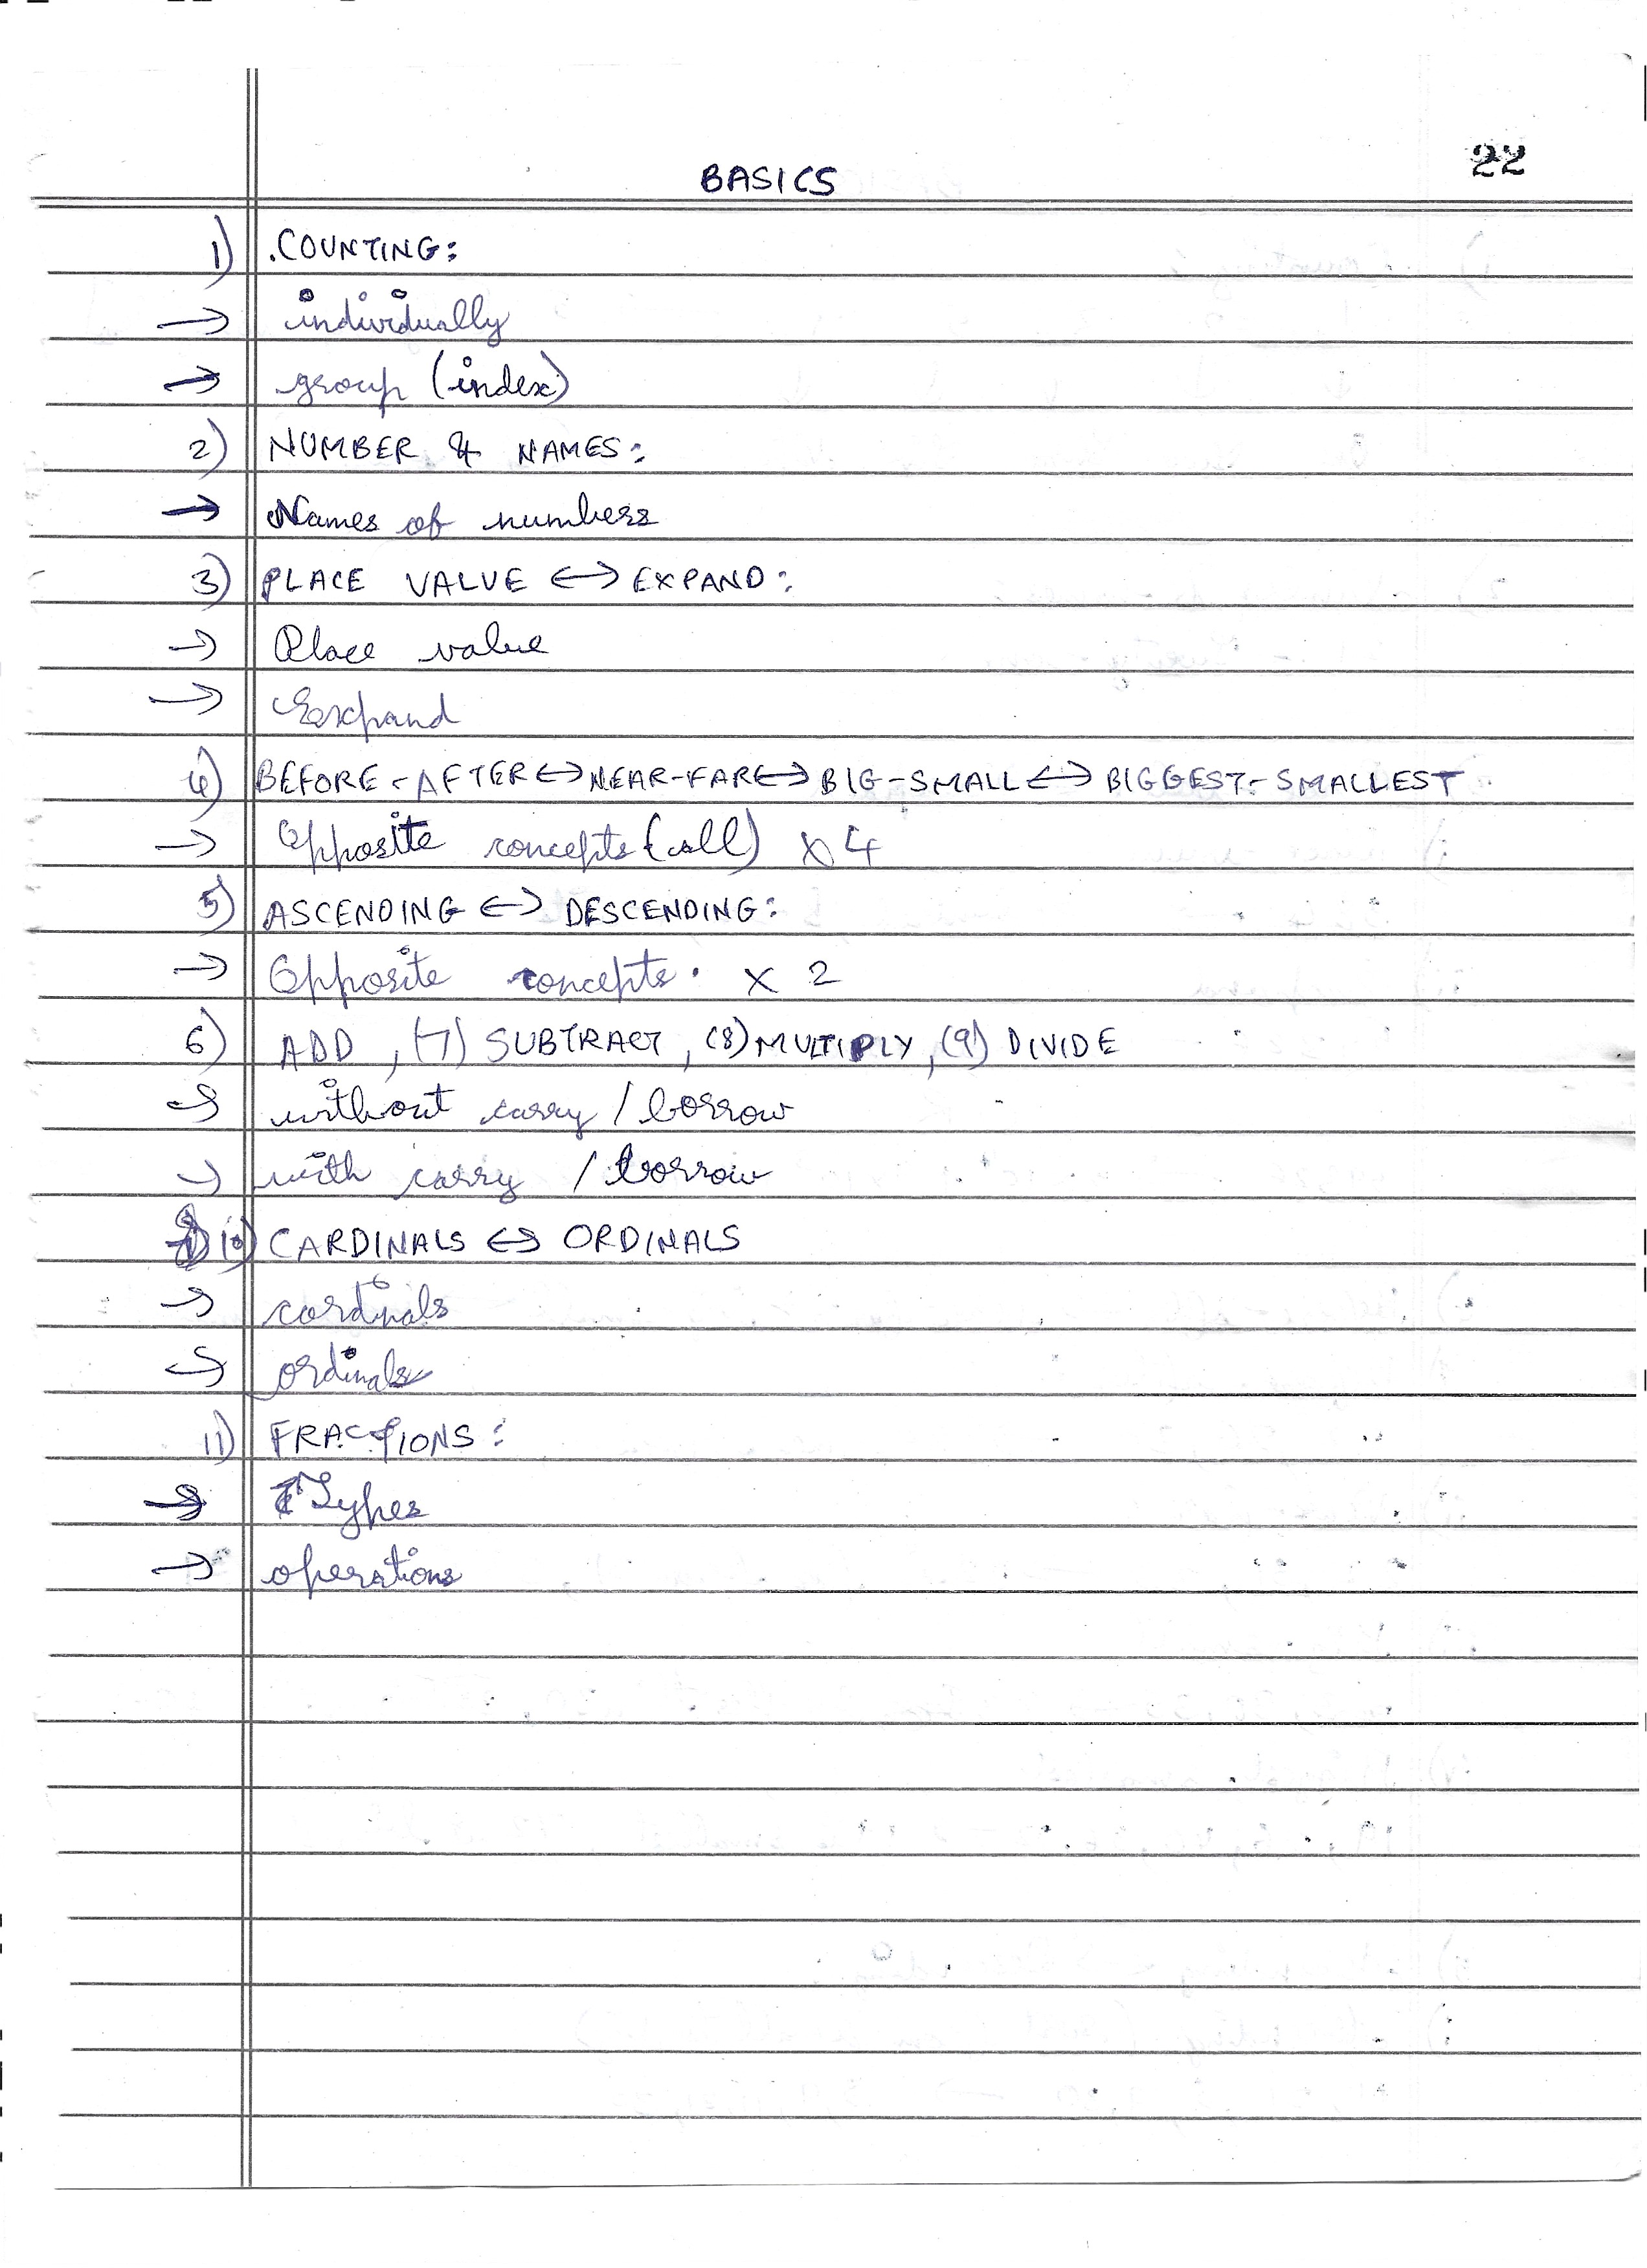 22
BASICS
1) .COUNTING:
→ individually
→ group (index)
2) NUMBER & NAMES:
→ Names of numbers
3) PLACE VALUE ↔ EXPAND:
→ Place value
→ Expand
4) BEFORE - AFTER ↔ NEAR-FAR ↔ BIG-SMALL ↔ BIGGEST - SMALLEST
→ Opposite concepts (all) x 4
5) ASCENDING ↔ DESCENDING:
→ Opposite concepts. x 2
6) ADD, (7) SUBTRACT, (8) MULTIPLY, (9) DIVIDE
→ without carry / borrow
→ with carry / borrow
10) CARDINALS ↔ ORDINALS
→ cardinals
→ ordinals
11) FRACTIONS:
→ Types
→ operations